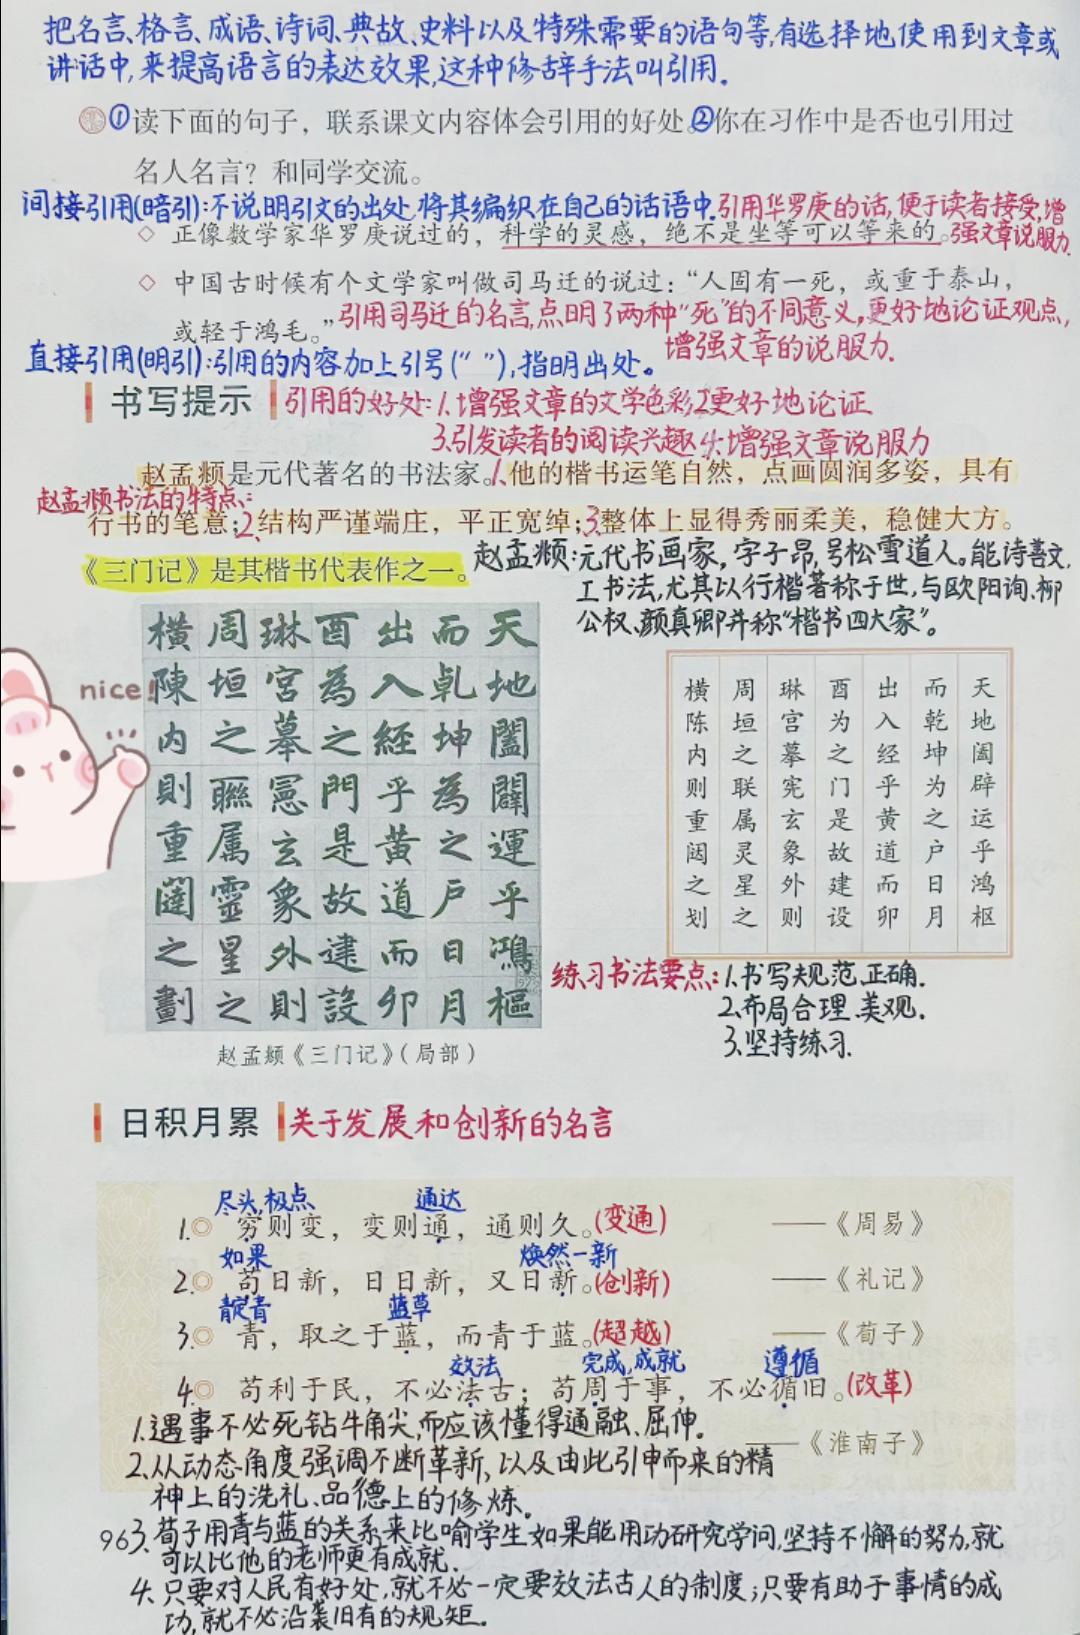 把名言、格言、成语、诗词、典故、史料以及特殊需要的语句等,有选择地使用到文章或
讲话中,来提高语言的表达效果,这种修辞手法叫引用.
①读下面的句子，联系课文内容体会引用的好处。②你在习作中是否也引用过
名人名言？和同学交流。
间接引用(暗引):不说明引文的出处,将其编织在自己的话语中.引用华罗庚的话,便于读者接受,增
强文章说服力.
◇ 正像数学家华罗庚说过的，科学的灵感，绝不是坐等可以等来的。
◇ 中国古时候有个文学家叫做司马迁的说过：“人固有一死，或重于泰山，
或轻于鸿毛。”
引用司马迁的名言,点明了两种“死”的不同意义,更好地论证观点,
增强文章的说服力.
直接引用(明引):引用的内容加上引号(“ ”),指明出处。
书写提示
引用的好处:1.增强文章的文学色彩,2.更好地论证
3.引发读者的阅读兴趣 4.增强文章说服力
赵孟𫖯书法的特点:
赵孟𫖯是元代著名的书法家。1.他的楷书运笔自然，点画圆润多姿，具有
行书的笔意;2.结构严谨端庄，平正宽绰;3.整体上显得秀丽柔美，稳健大方。
《三门记》是其楷书代表作之一。
赵孟𫖯:元代书画家,字子昂,号松雪道人。能诗善文,
工书法,尤其以行楷著称于世,与欧阳询、柳
公权、颜真卿并称“楷书四大家”。
天地闔闢運乎鴻樞
而乹坤為之户日月
出入經乎黄道而卯
酉為之門是故建設
琳宫摹憲玄象外則
周垣之聮属靈星之
横陳内則重闥之劃
nice!
天地阖辟运乎鸿枢
而乾坤为之户日月
出入经乎黄道而卯
酉为之门是故建设
琳宫摹宪玄象外则
周垣之联属灵星之
横陈内则重闼之划
赵孟𫖯《三门记》（局部）
练习书法要点:1.书写规范、正确.
2.布局合理、美观.
3.坚持练习.
日积月累
关于发展和创新的名言
尽头,极点 通达
1.◎ 穷则变，变则通，通则久。(变通) ——《周易》
如果 焕然一新
2.◎ 苟日新，日日新，又日新。(创新) ——《礼记》
靛青 蓝草
3.◎ 青，取之于蓝，而青于蓝。(超越) ——《荀子》
效法 完成,成就 遵循
4.◎ 苟利于民，不必法古；苟周于事，不必循旧。(改革)
——《淮南子》
1.遇事不必死钻牛角尖,而应该懂得通融、屈伸.
2.从动态角度强调不断革新,以及由此引申而来的精
神上的洗礼、品德上的修炼.
96
3.荀子用青与蓝的关系来比喻学生如果能用功研究学问,坚持不懈的努力,就
可以比他的老师更有成就.
4.只要对人民有好处,就不必一定要效法古人的制度;只要有助于事情的成
功,就不必沿袭旧有的规矩.